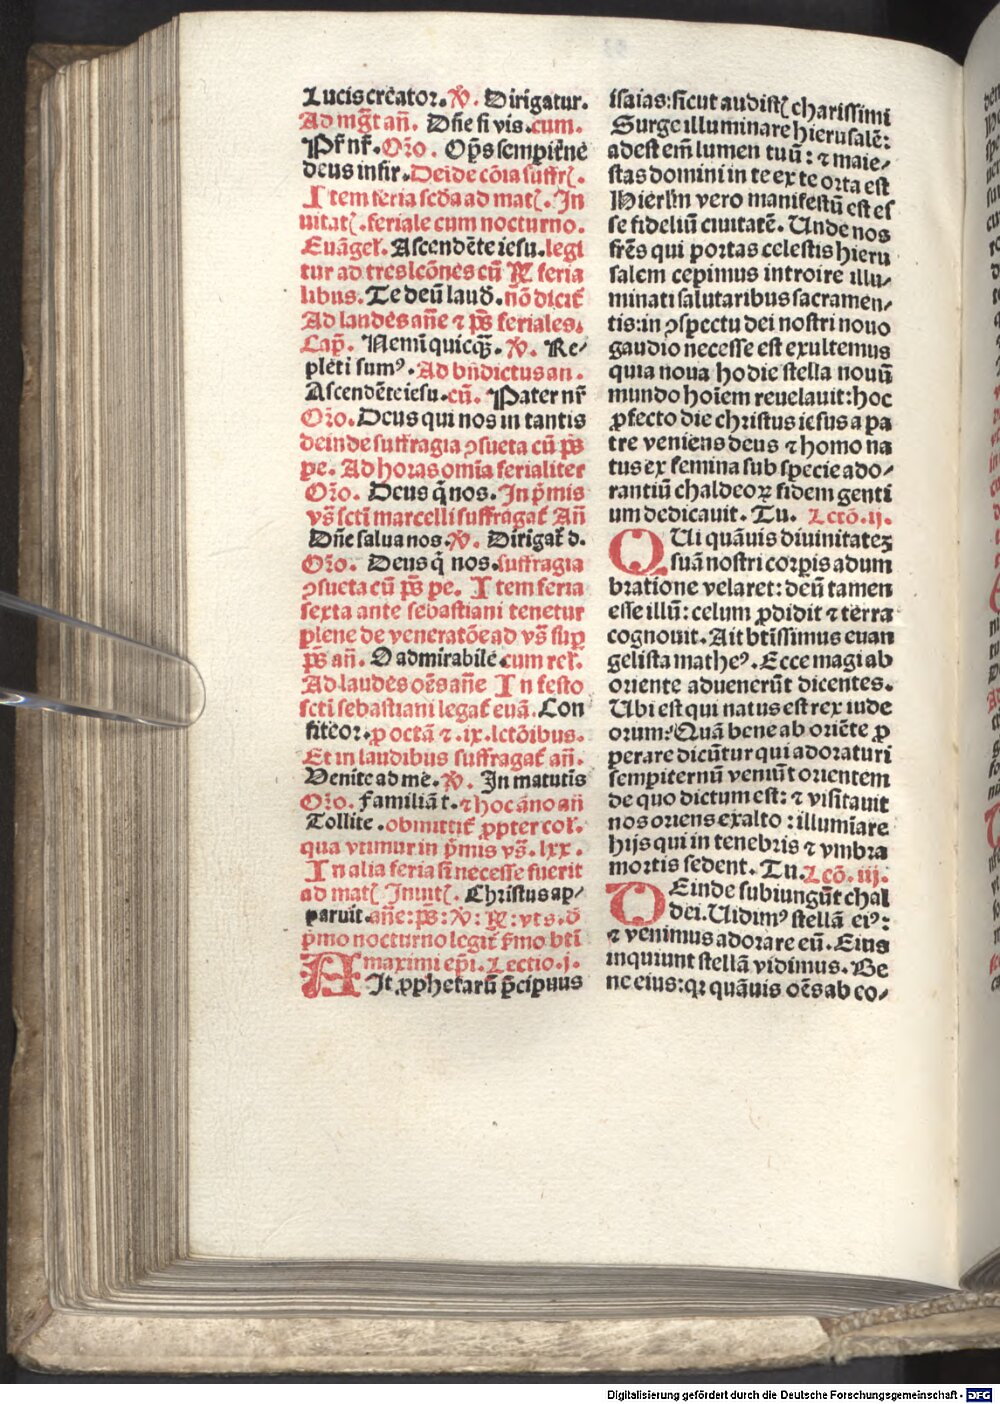 Lucis creator. ℣. Dirigatur.
Ad mg̃t añ. Dñe si vis. cum.
Pr̃ nr̃. Oꝛo. Op̃s sempiterne
deus infir. Deīde cōia suffrꝭ.
Item feria scd̄a ad matꝭ. In
uitatꝭ. feriale cum nocturno.
Euāgel. Ascendēte iesu. legi
tur ad tres lcōnes cū ℟ feria
libus. Te deū laud. nō dicit̃
Ad landes añe ⁊ ps̄ feriales.
Cap̄. Nemī quicq̄ꝫ. ℣. Re-
pleti sumꝰ. Ad bn̄dictus an.
Ascendēte iesu. cū. Pater nr̄
Oꝛo. Deus qui nos in tantis
deinde suffragia ꝯsueta cū ps̄
pe. Ad horas omīa ferialiter
Oꝛo. Deus q̄ nos. In p̄mis
vs̄ scti marcelli suffragat̃ Añ
Dñe salua nos. ℣. Dirigat̃ d.
Oꝛo. Deus q̄ nos. suffragia
ꝯsueta cū ps̄ pe. Item feria
sexta ante sebastiani tenetur
plene de veneratōe ad vs̄ sup̱
ps̄ añ. O admirabile. cum rel.
Ad laudes oēs añe In festo
scti sebastiani legat̃ euā. Con
fiteor. ꝑ octā ⁊. ix. lctōibus.
Et in laudibus suffragat̃ añ.
Venite ad me. ℣. In matutis
Oꝛo. Familiā t. ⁊ hoc āno añ
Tollite. obmittit̃ ꝓpter col.
qua vtimur in p̄mis vs̄. lxx.
In alia feria si necesse fuerit
ad matꝭ Inuitꝭ. Christus ap-
paruit. añe: ps̄: ℣: ℟: vt s. d̄
p̄mo nocturno legit̃ s̄mo bt̄i
maximi ep̄i. Lectio. j.
AIt ꝓphetarū p̄cipuus
isaias: sicut audistꝭ charissimi
Surge illuminare hierusalē:
adest em̄ lumen tuū: ⁊ maie-
stas domini in te exte orta est
Hierlm̄ vero manifestū est es
se fideliū ciuitatē. Unde nos
fr̄es qui portas celestis hieru
salem cepimus introire illu-
minati salutaribus sacramen-
tis: in ꝯspectu dei nostri nouo
gaudio necesse est exultemus
quia noua hodie stella nouū
mundo hoīem reuelauit: hoc
ꝓfecto die christus iesus a pa
tre veniens deus ⁊ homo na
tus ex femina sub specie ado-
rantiū chaldeoꝝ fidem genti
um dedicauit. Tu. Lctō. ij.
QUi quāuis diuinitatez
suā nostri corpis adum
bratione velaret: deū tamen
esse illū: celum ꝓdidit ⁊ terra
cognouit. Ait bt̄issimus euan
gelista matheꝰ. Ecce magi ab
oriente aduenerūt dicentes.
Ubi est qui natus est rex iude
orum? Quā bene ab oriēte ꝓ
perare dicūtur qui adoraturi
sempiternū veniūt orientem
de quo dictum est: ⁊ visitauit
nos oriens ex alto: illumīare
hijs qui in tenebris ⁊ vmbra
mortis sedent. Tu. Lcō. iij.
DEinde subiungūt chal
dei. Uidimꝰ stellā eiꝰ:
⁊ venimus adorare eū. Eius
inquiunt stellā vidimus. Be
ne eius: qꝛ quāuis oēs ab eo-
Digitalisierung gefördert durch die Deutsche Forschungsgemeinschaft - DFG